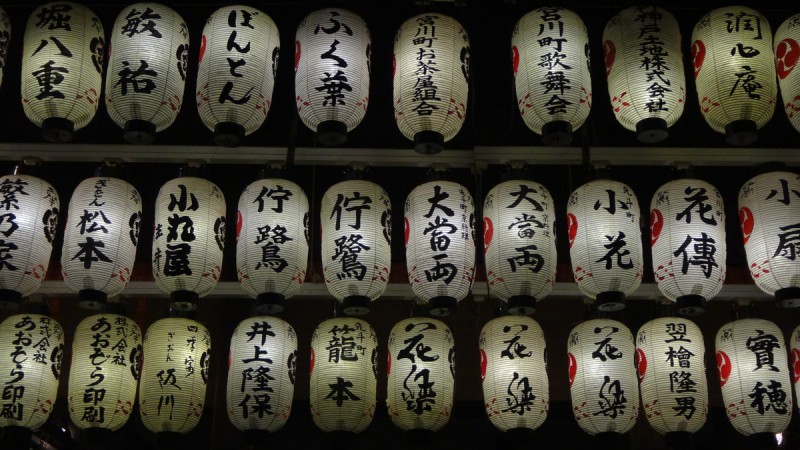 堀八重
敏祐
ぼんとん
ふく葉
宮川町お茶屋組合
宮川町歌舞会
株式会社
潤心庵
繁乃家
ぎおん
松本
小丸屋
住井
佇鷺
佇鷺
大當両
大當両
小花
花傳
小扇
株式会社
あおぞら印刷
株式会社
あおぞら印刷
ぎおん
阪川
井上隆保
籠本
花
花
花
翌檜隆男
實穂